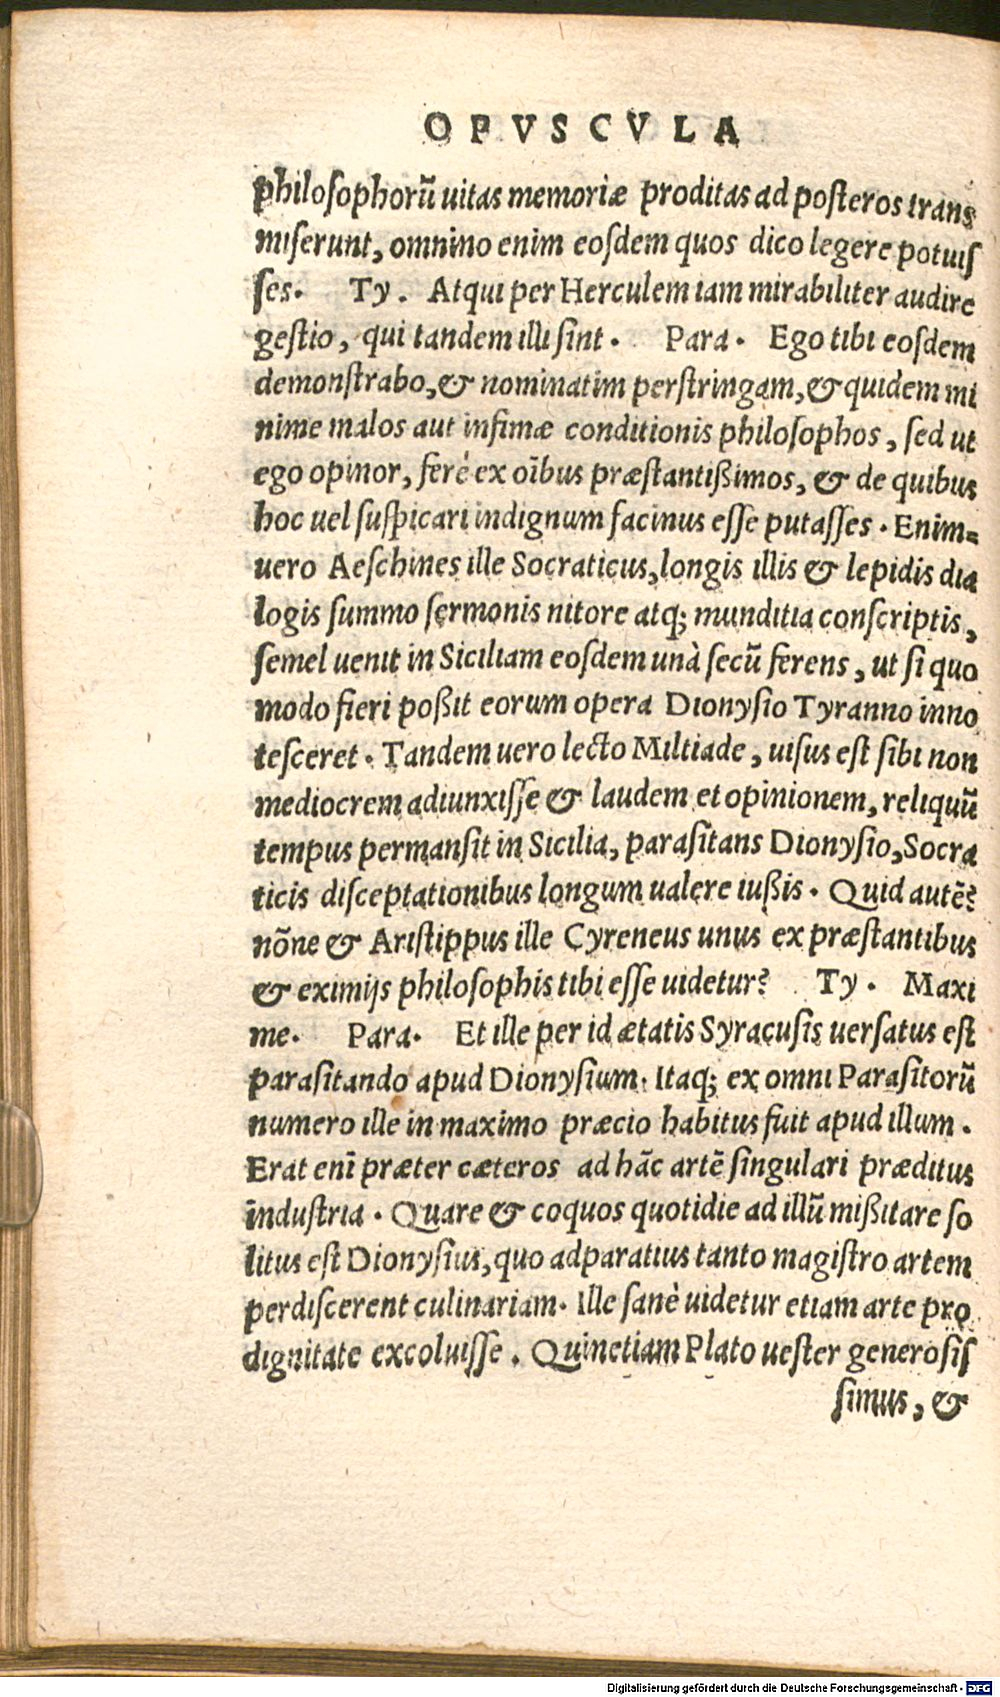 OPVSCVLA
philosophorū uitas memoriæ proditas ad posteros trans
miserunt, omnino enim eosdem quos dico legere potuis
ses. Ty. Atqui per Herculem iam mirabiliter audire
gestio, qui tandem illi sint. Para. Ego tibi eosdem
demonstrabo, & nominatim perstringam, & quidem mi
nime malos aut infimæ conditionis philosophos, sed ut
ego opinor, ferè ex oībus præstantißimos, & de quibus
hoc uel suspicari indignum facinus esse putasses. Enim=
uero Aeschines ille Socraticus, longis illis & lepidis dia
logis summo sermonis nitore atq; munditia conscriptis,
semel uenit in Siciliam eosdem unà secū ferens, ut si quo
modo fieri poßit eorum opera Dionysio Tyranno inno
tesceret. Tandem uero lecto Miltiade, uisus est sibi non
mediocrem adiunxisse & laudem et opinionem, reliquū
tempus permansit in Sicilia, parasitans Dionysio, Socra
ticis disceptationibus longum ualere iußis. Quid autē?
nōne & Aristippus ille Cyreneus unus ex præstantibus
& eximijs philosophis tibi esse uidetur? Ty. Maxi
me. Para. Et ille per id ætatis Syracusis uersatus est
parasitando apud Dionysium. Itaq; ex omni Parasitorū
numero ille in maximo præcio habitus fuit apud illum.
Erat enī præter cæteros ad hāc artē singulari præditus
industria. Quare & coquos quotidie ad illū mißitare so
litus est Dionysius, quo adparatius tanto magistro artem
perdiscerent culinariam. Ille sanè uidetur etiam arte pro
dignitate excoluisse. Quinetiam Plato uester generosis
simus, &
Digitalisierung gefördert durch die Deutsche Forschungsgemeinschaft - DFG